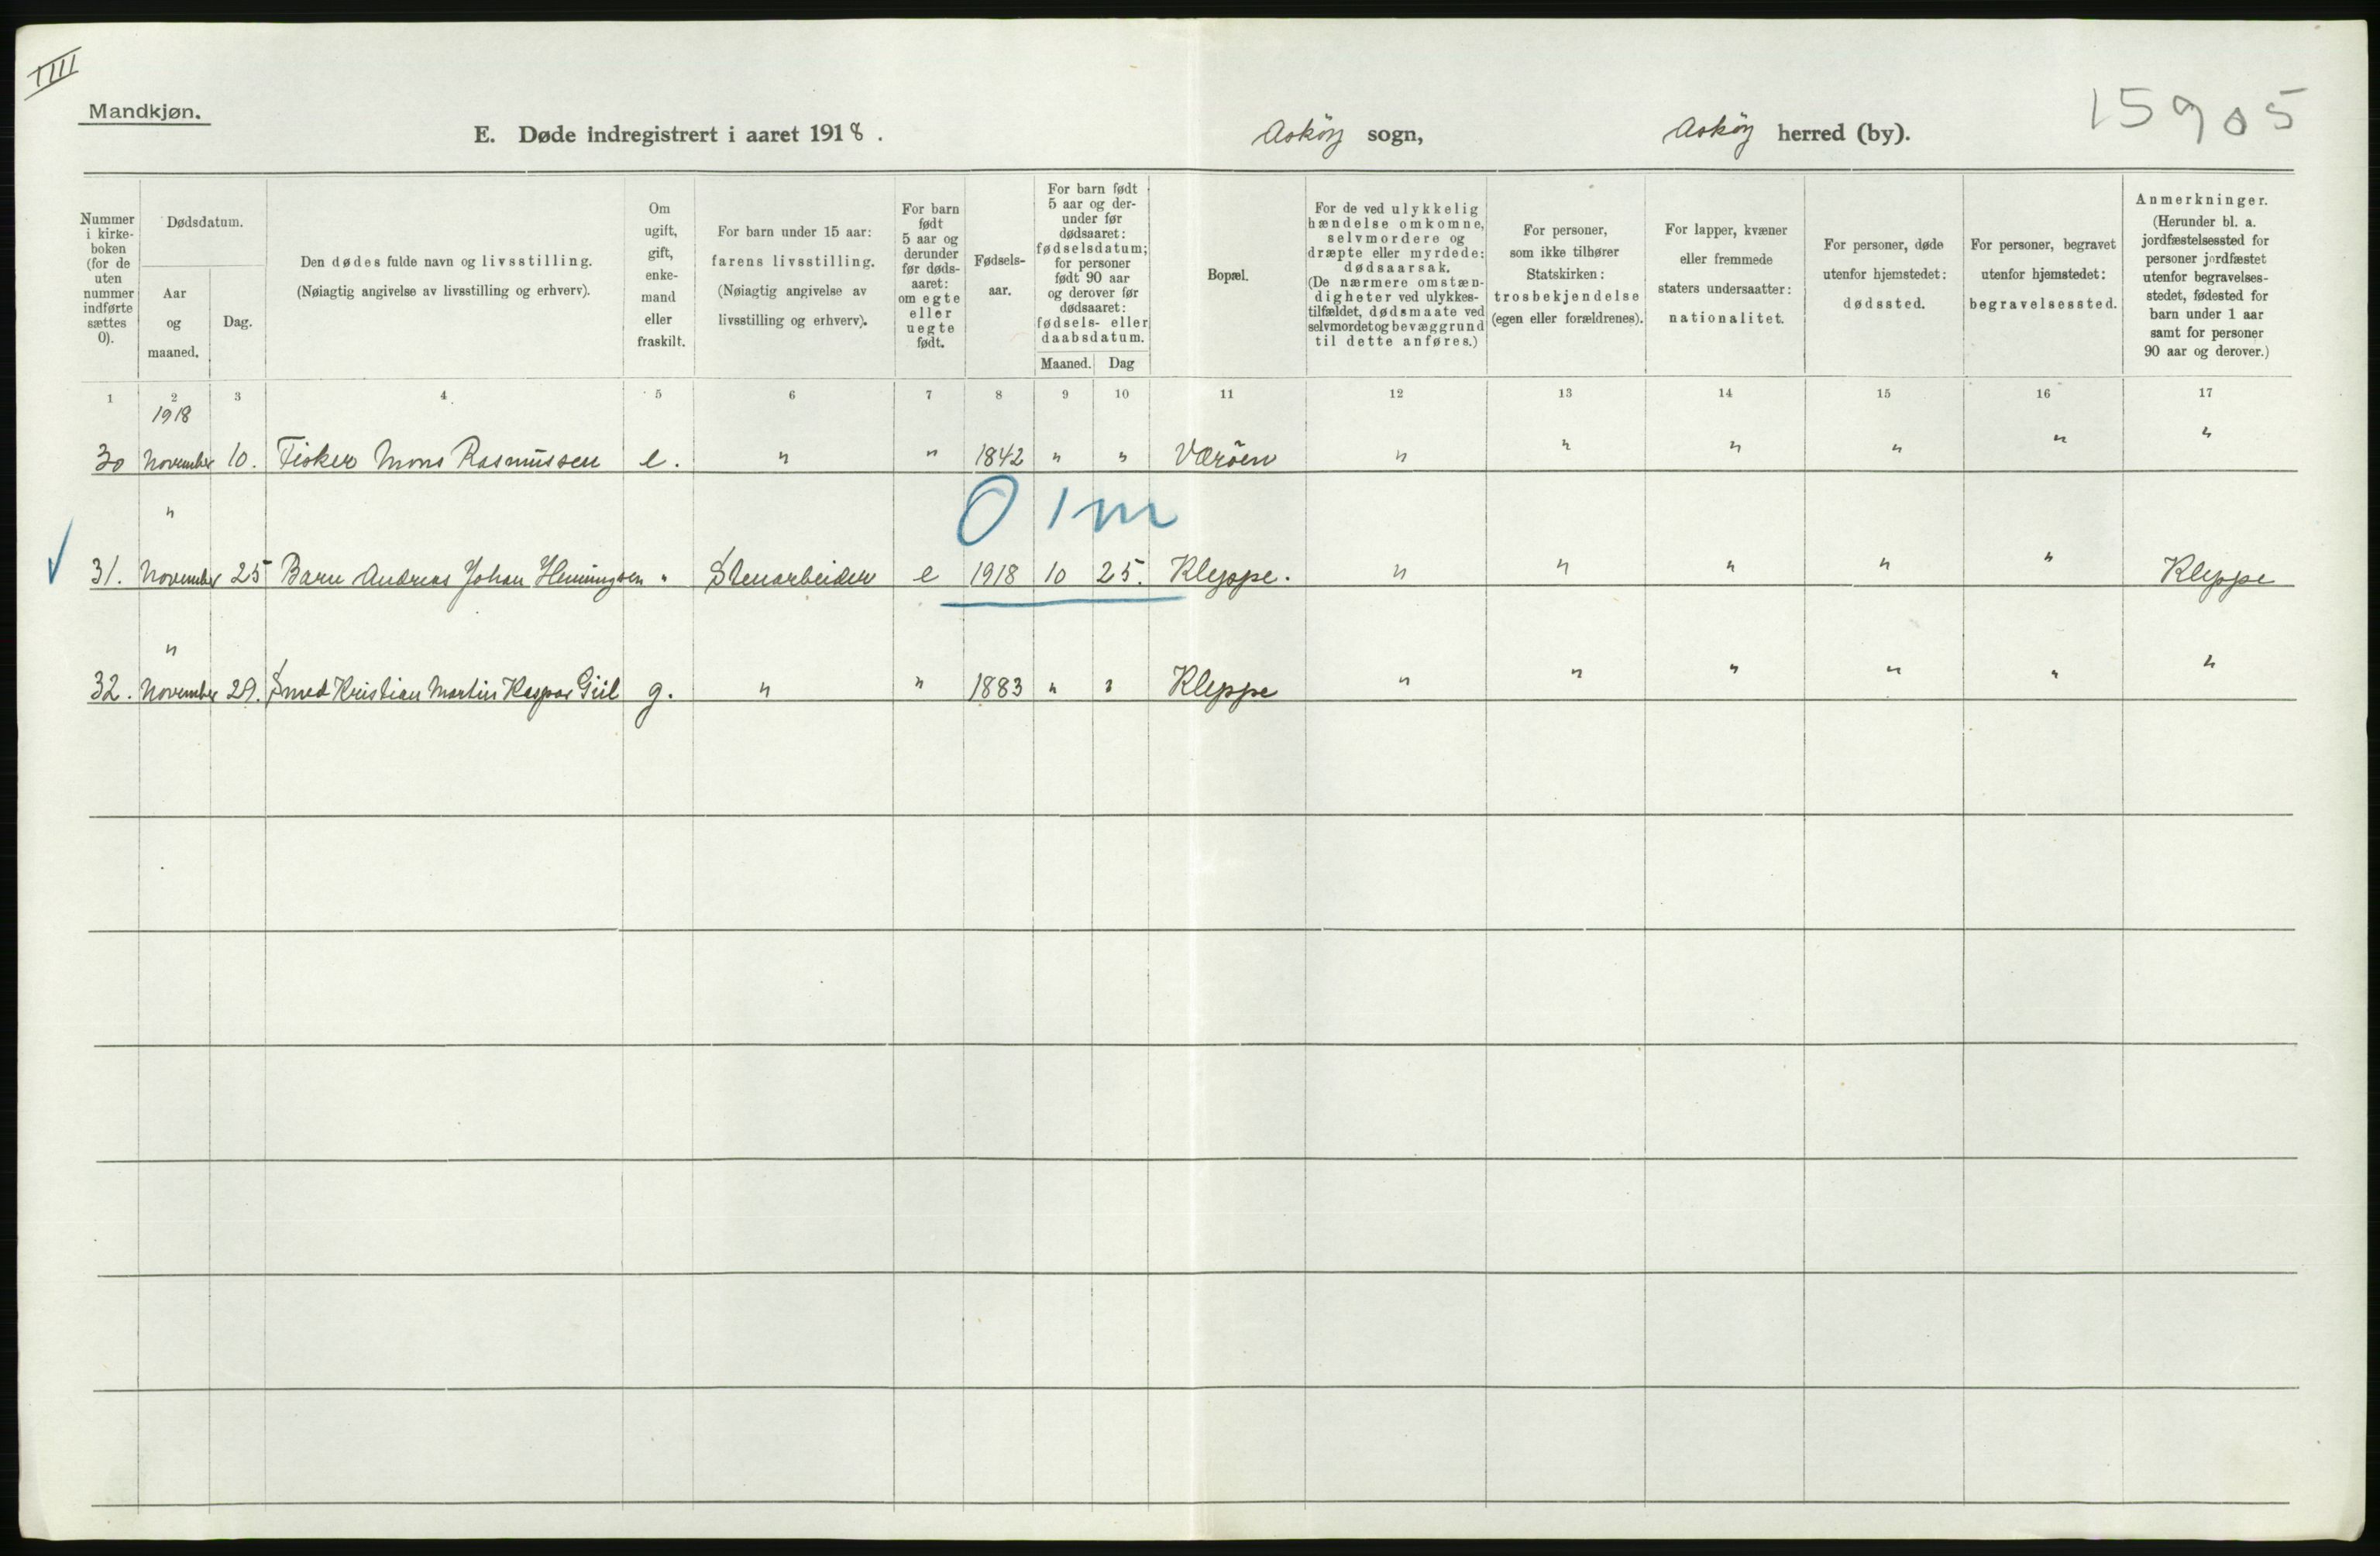 IIII
Mandkjøn.
15905
E. Døde indregistrert i aaret 1918.
Askøy sogn,
Askøy herred (by).
Nummer i kirke-
boken
(for de
uten
nummer
indførte
sættes
0).
Dødsdatum.
Aar
og
maaned.
Dag.
Den dødes fulde navn og livsstilling.
(Nøiagtig angivelse av livsstilling og erhverv).
Om
ugift,
gift,
enke-
mand
eller
fraskilt.
For barn under 15 aar:
farens livsstilling.
(Nøiagtig angivelse av
livsstilling og erhverv).
For barn
født
5 aar og
derunder
før døds-
aaret:
om egte
eller
uegte
født.
Fødsels-
aar.
For barn født
5 aar og der-
under før
dødsaaret:
fødselsdatum;
for personer
født 90 aar
og derover før
dødsaaret:
fødsels- eller
daabsdatum.
Maaned. Dag
Bopæl.
For de ved ulykkelig
hændelse omkomne,
selvmordere og
dræpte eller myrdede:
dødsaarsak.
(De nærmere omstæn-
digheter ved ulykkes-
tilfældet, dødsmaate ved
selvmordet og bevæggrund
til dette anføres.)
For personer,
som ikke tilhører
Statskirken:
trosbekjendelse
(egen eller forældrenes).
For lapper, kvæner
eller fremmede
staters undersaatter:
nationalitet.
For personer, døde
utenfor hjemstedet:
dødssted.
For personer, begravet
utenfor hjemstedet:
begravelsessted.
Anmerkninger.
(Herunder bl. a.
jordfæstelsessted for
personer jordfæstet
utenfor begravelses-
stedet, fødested for
barn under 1 aar
samt for personer
90 aar og derover.)
1 2 3 4 5 6 7 8 9 10 11 12 13 14 15 16 17
1918
30 November 10. Fisker Mons Rasmussen e. " " 1842 " " Værøen " " " " " "
" 0 1 m
31. November 25 Barn Andreas Johan Henningsen " Stenarbeider e 1918 10 25. Kleppe. " " " " " Kleppe
"
32. November 29. Smed Kristian Martin Kaspar Giil g. " " 1883 " " Kleppe " " " " " "